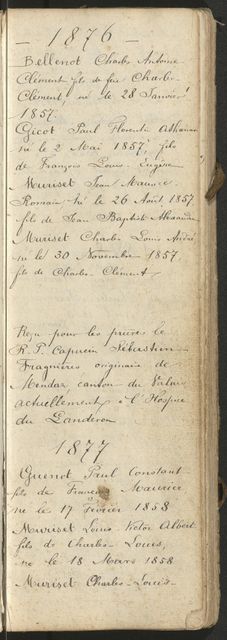 — 1876 —
Bellenot Charles Antoine
Clément fils de feu Charles
Clément, né le 28 Janvier
1857.
Gicot Paul Florentin Athanase
né le 2 Mai 1857, fils
de François Louis Eugène
Muriset Jean Maurice
Romain né le 26 Août 1857
fils de Jean Baptist Alexandre
Muriset Charles Louis André
né le 30 Novembre 1857.
fils de Charles Clément
Reçu pour les prières le
R. P. Capucin Sébastien
Fragnières originaire de
Mendaz canton du Valais
actuellement à l'Hospice
du Landeron
1877
Guenot Paul Constant
fils de François Maurice
né le 17 Février 1858
Muriset Louis Victor Albert
fils de Charles Louis,
né le 18 Mars 1858
Muriset Charles-Louis-